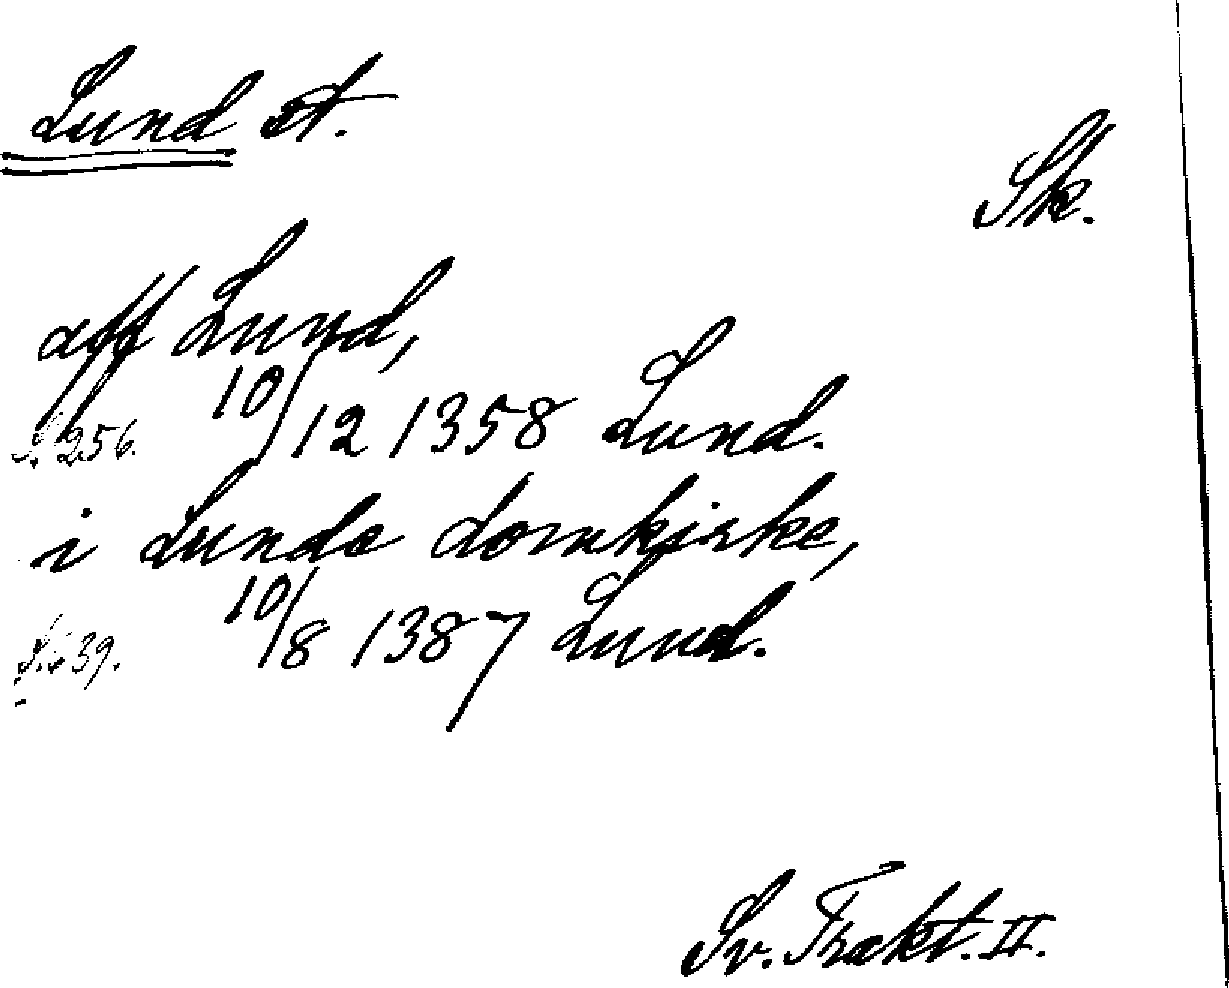 Lund st.
Sk.
aff Lund,
S. 256. 10/12 1358 Lund.
i Lunde domkirke,
10/8 1387 Lund.
Sv. Trakt. II.